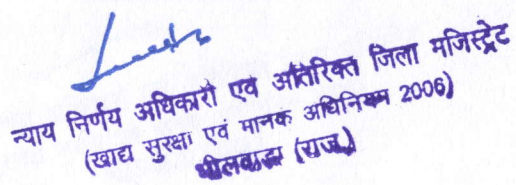 न्याय निर्णय अधिकारी एवं अतिरिक्त जिला मजिस्ट्रेट
(खाद्य सुरक्षा एवं मानक अधिनियम 2006)
भीलवाड़ा (राज.)